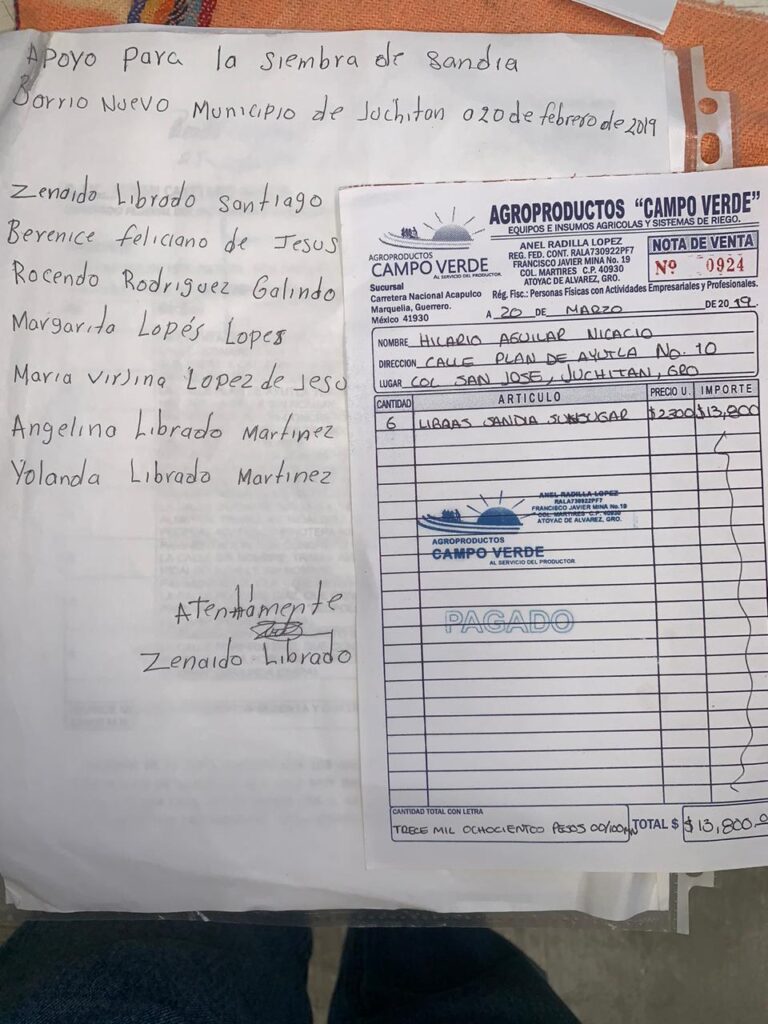 Apoyo Para la siembra de sandia
Barrio Nuevo Municipio de Juchitan a 20 de febrero de 2019
Zenaido Librado Santiago
Berenice feliciano de Jesus
Rocendo Rodriguez Galindo
Margarita Lopés Lopes
Maria virjina Lopez de Jesu
Angelina Librado Martinez
Yolanda Librado Martinez
Atentámente
Zenaido Librado
AGROPRODUCTOS
CAMPO VERDE
AL SERVICIO DEL PRODUCTOR
AGROPRODUCTOS "CAMPO VERDE"
EQUIPOS E INSUMOS AGRICOLAS Y SISTEMAS DE RIEGO.
ANEL RADILLA LOPEZ
REG. FED. CONT. RALA730922PF7
FRANCISCO JAVIER MINA No. 19
COL. MARTIRES C.P. 40930
ATOYAC DE ALVAREZ, GRO.
NOTA DE VENTA
Nº 0924
Sucursal
Carretera Nacional Acapulco
Marquelia, Guerrero.
México 41930
Rég. Fisc.: Personas Físicas con Actividades Empresariales y Profesionales.
A 20 DE MARZO DE 2019.
NOMBRE HILARIO AGUILAR NICACIO
DIRECCION CALLE PLAN DE AYUTLA No. 10
LUGAR COL SAN JOSE, JUCHITAN, GRO
CANTIDAD ARTICULO PRECIO U. IMPORTE
6 LIBRAS SANDIA SUNSUGAR $2300 $13,800
ANEL RADILLA LOPEZ
RALA730922PF7
FRANCISCO JAVIER MINA No.19
COL. MARTIRES C.P. 40930
ATOYAC DE ALVAREZ, GRO.
AGROPRODUCTOS
CAMPO VERDE
AL SERVICIO DEL PRODUCTOR
PAGADO
CANTIDAD TOTAL CON LETRA
TRECE MIL OCHOCIENTOO PESOS 00/100 MN
TOTAL $ $13,800.0